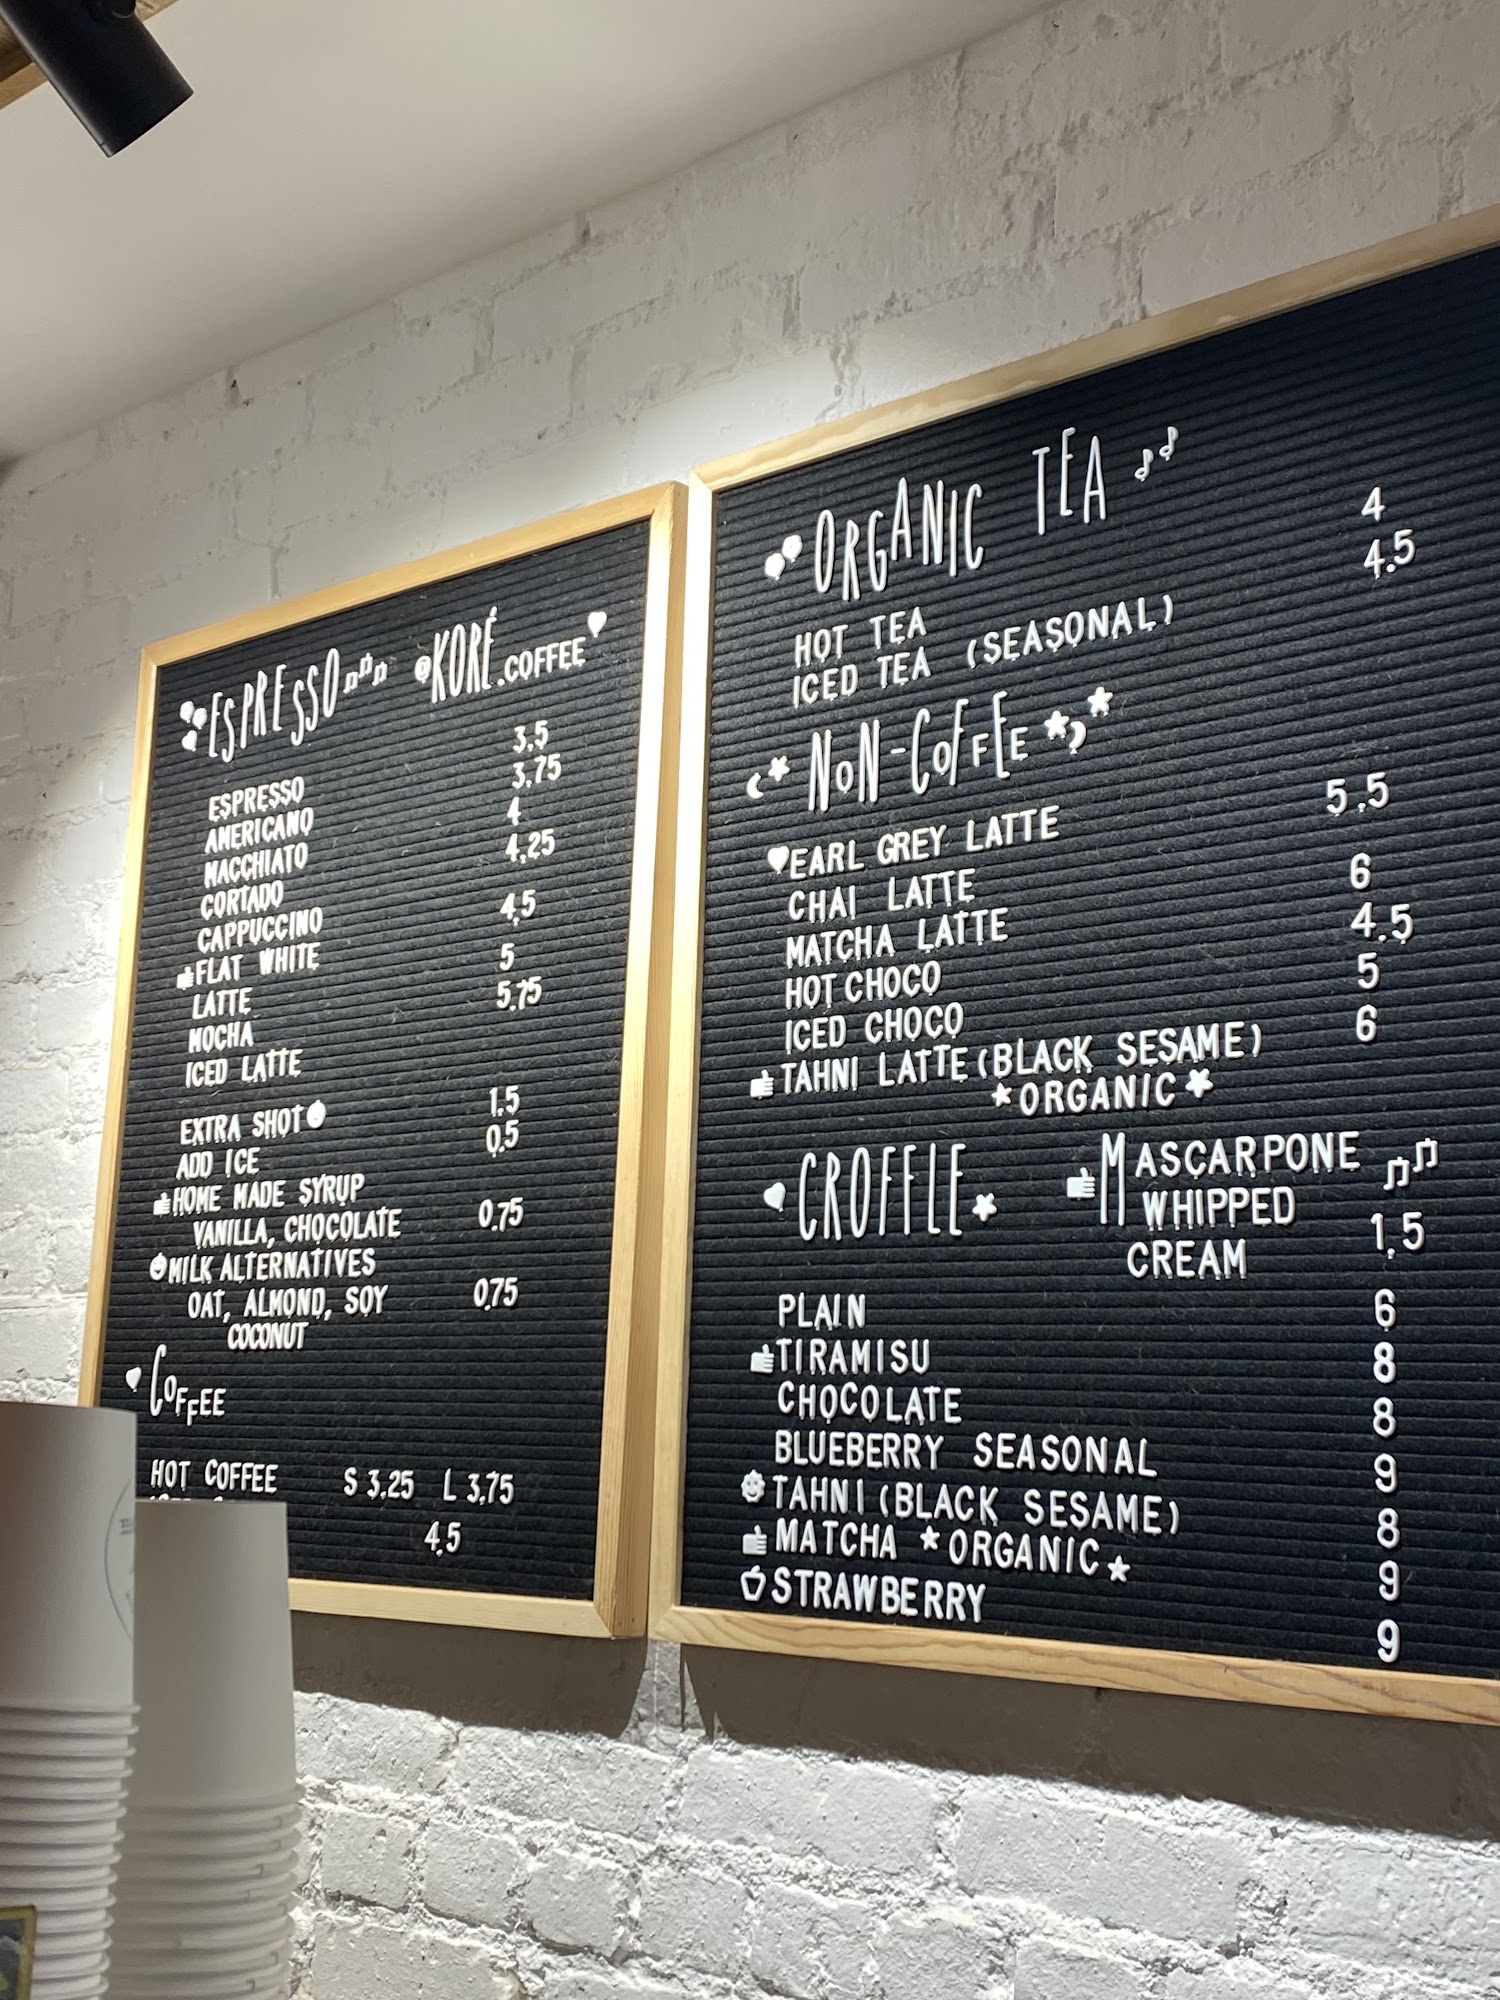 ESPRESSO @KORÉ.COFFEE
ESPRESSO 3.5
AMERICANO 3.75
MACCHIATO 4
CORTADO 4.25
CAPPUCCINO
FLAT WHITE 4.5
LATTE 5
MOCHA 5.75
ICED LATTE
EXTRA SHOT 1.5
ADD ICE 0.5
HOME MADE SYRUP
VANILLA, CHOCOLATE 0.75
MILK ALTERNATIVES
OAT, ALMOND, SOY 0.75
COCONUT
COFFEE
HOT COFFEE S 3.25 L 3.75
4.5
ORGANIC TEA
HOT TEA 4
ICED TEA (SEASONAL) 4.5
NON-COFFEE
EARL GREY LATTE 5.5
CHAI LATTE
MATCHA LATTE 6
HOT CHOCO 4.5
ICED CHOCO 5
TAHNI LATTE (BLACK SESAME) 6
*ORGANIC*
CROFFLE MASCARPONE
WHIPPED
CREAM 1.5
PLAIN 6
TIRAMISU 8
CHOCOLATE 8
BLUEBERRY SEASONAL 9
TAHNI (BLACK SESAME) 8
MATCHA *ORGANIC* 9
STRAWBERRY 9